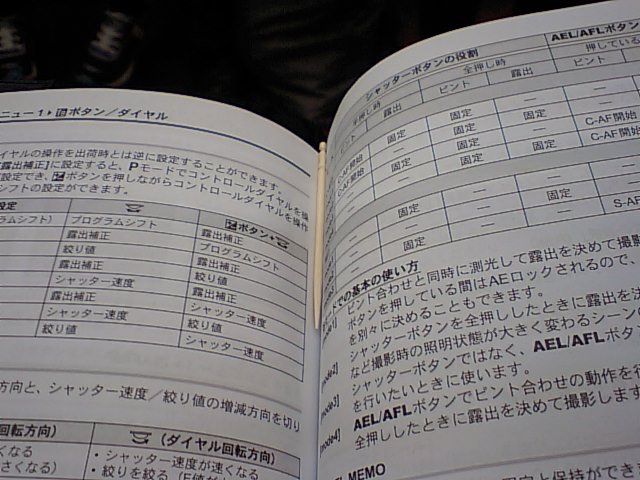 ニュー1▶ボタン/ダイヤル
イヤルの操作を出荷時とは逆に設定することができます。
[露出補正]に設定すると、Pモードでコントロールダイヤルを操
設定でき、ボタンを押しながらコントロールダイヤルを操作
シフトの設定ができます。
設定
ボタン+
ラムシフト) プログラムシフト 露出補正
露出補正 プログラムシフト
絞り値 露出補正
露出補正 絞り値
シャッター速度 露出補正
露出補正 シャッター速度
シャッター速度 絞り値
絞り値 シャッター速度
方向と、シャッター速度/絞り値の増減方向を切り
回転方向) (ダイヤル回転方向)
くなる ・シャッター速度が速くなる
さくなる) ・絞りを絞る(F値が
シャッターボタンの役割 AEL/AFLボタン
半押し時 全押し時 押している
ピント 露出 ピント 露出 ピント
C-AF開始 固定 固定 固定
C-AF開始 — 固定 — C-AF開始
— 固定 固定 固定 C-AF開始
— 固定 — —
— — — 固定 —
— 固定 — — S-AF
での基本の使い方
ピント合わせと同時に測光して露出を決めて撮影
ボタンを押している間はAEロックされるので、
を別々に決めることもできます。
[mode2] シャッターボタンを全押ししたときに露出を決
など撮影時の照明状態が大きく変わるシーンの
[mode3] シャッターボタンではなく、AEL/AFLボタ
を行いたいときに使います。
[mode4] AEL/AFLボタンでピント合わせの動作を行
全押ししたときに露出を決めて撮影します
MEMO